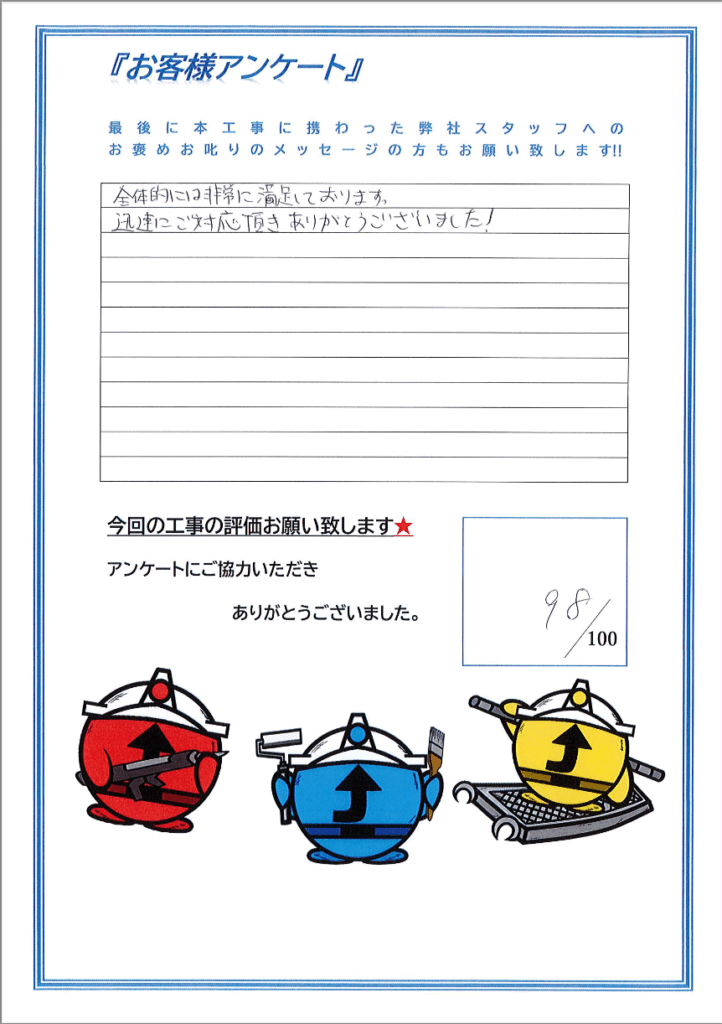 『お客様アンケート』
最後に本工事に携わった弊社スタッフへの
お褒めお叱りのメッセージの方もお願い致します!!
全体的には非常に満足しております。
迅速にご対応頂きありがとうございました!
今回の工事の評価お願い致します★
アンケートにご協力いただき
ありがとうございました。
98/100